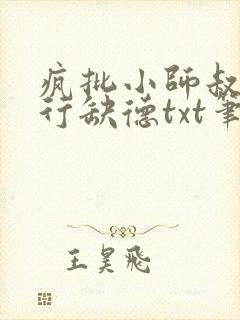 疯批小師叔
行缺德txt筆
王昊飛